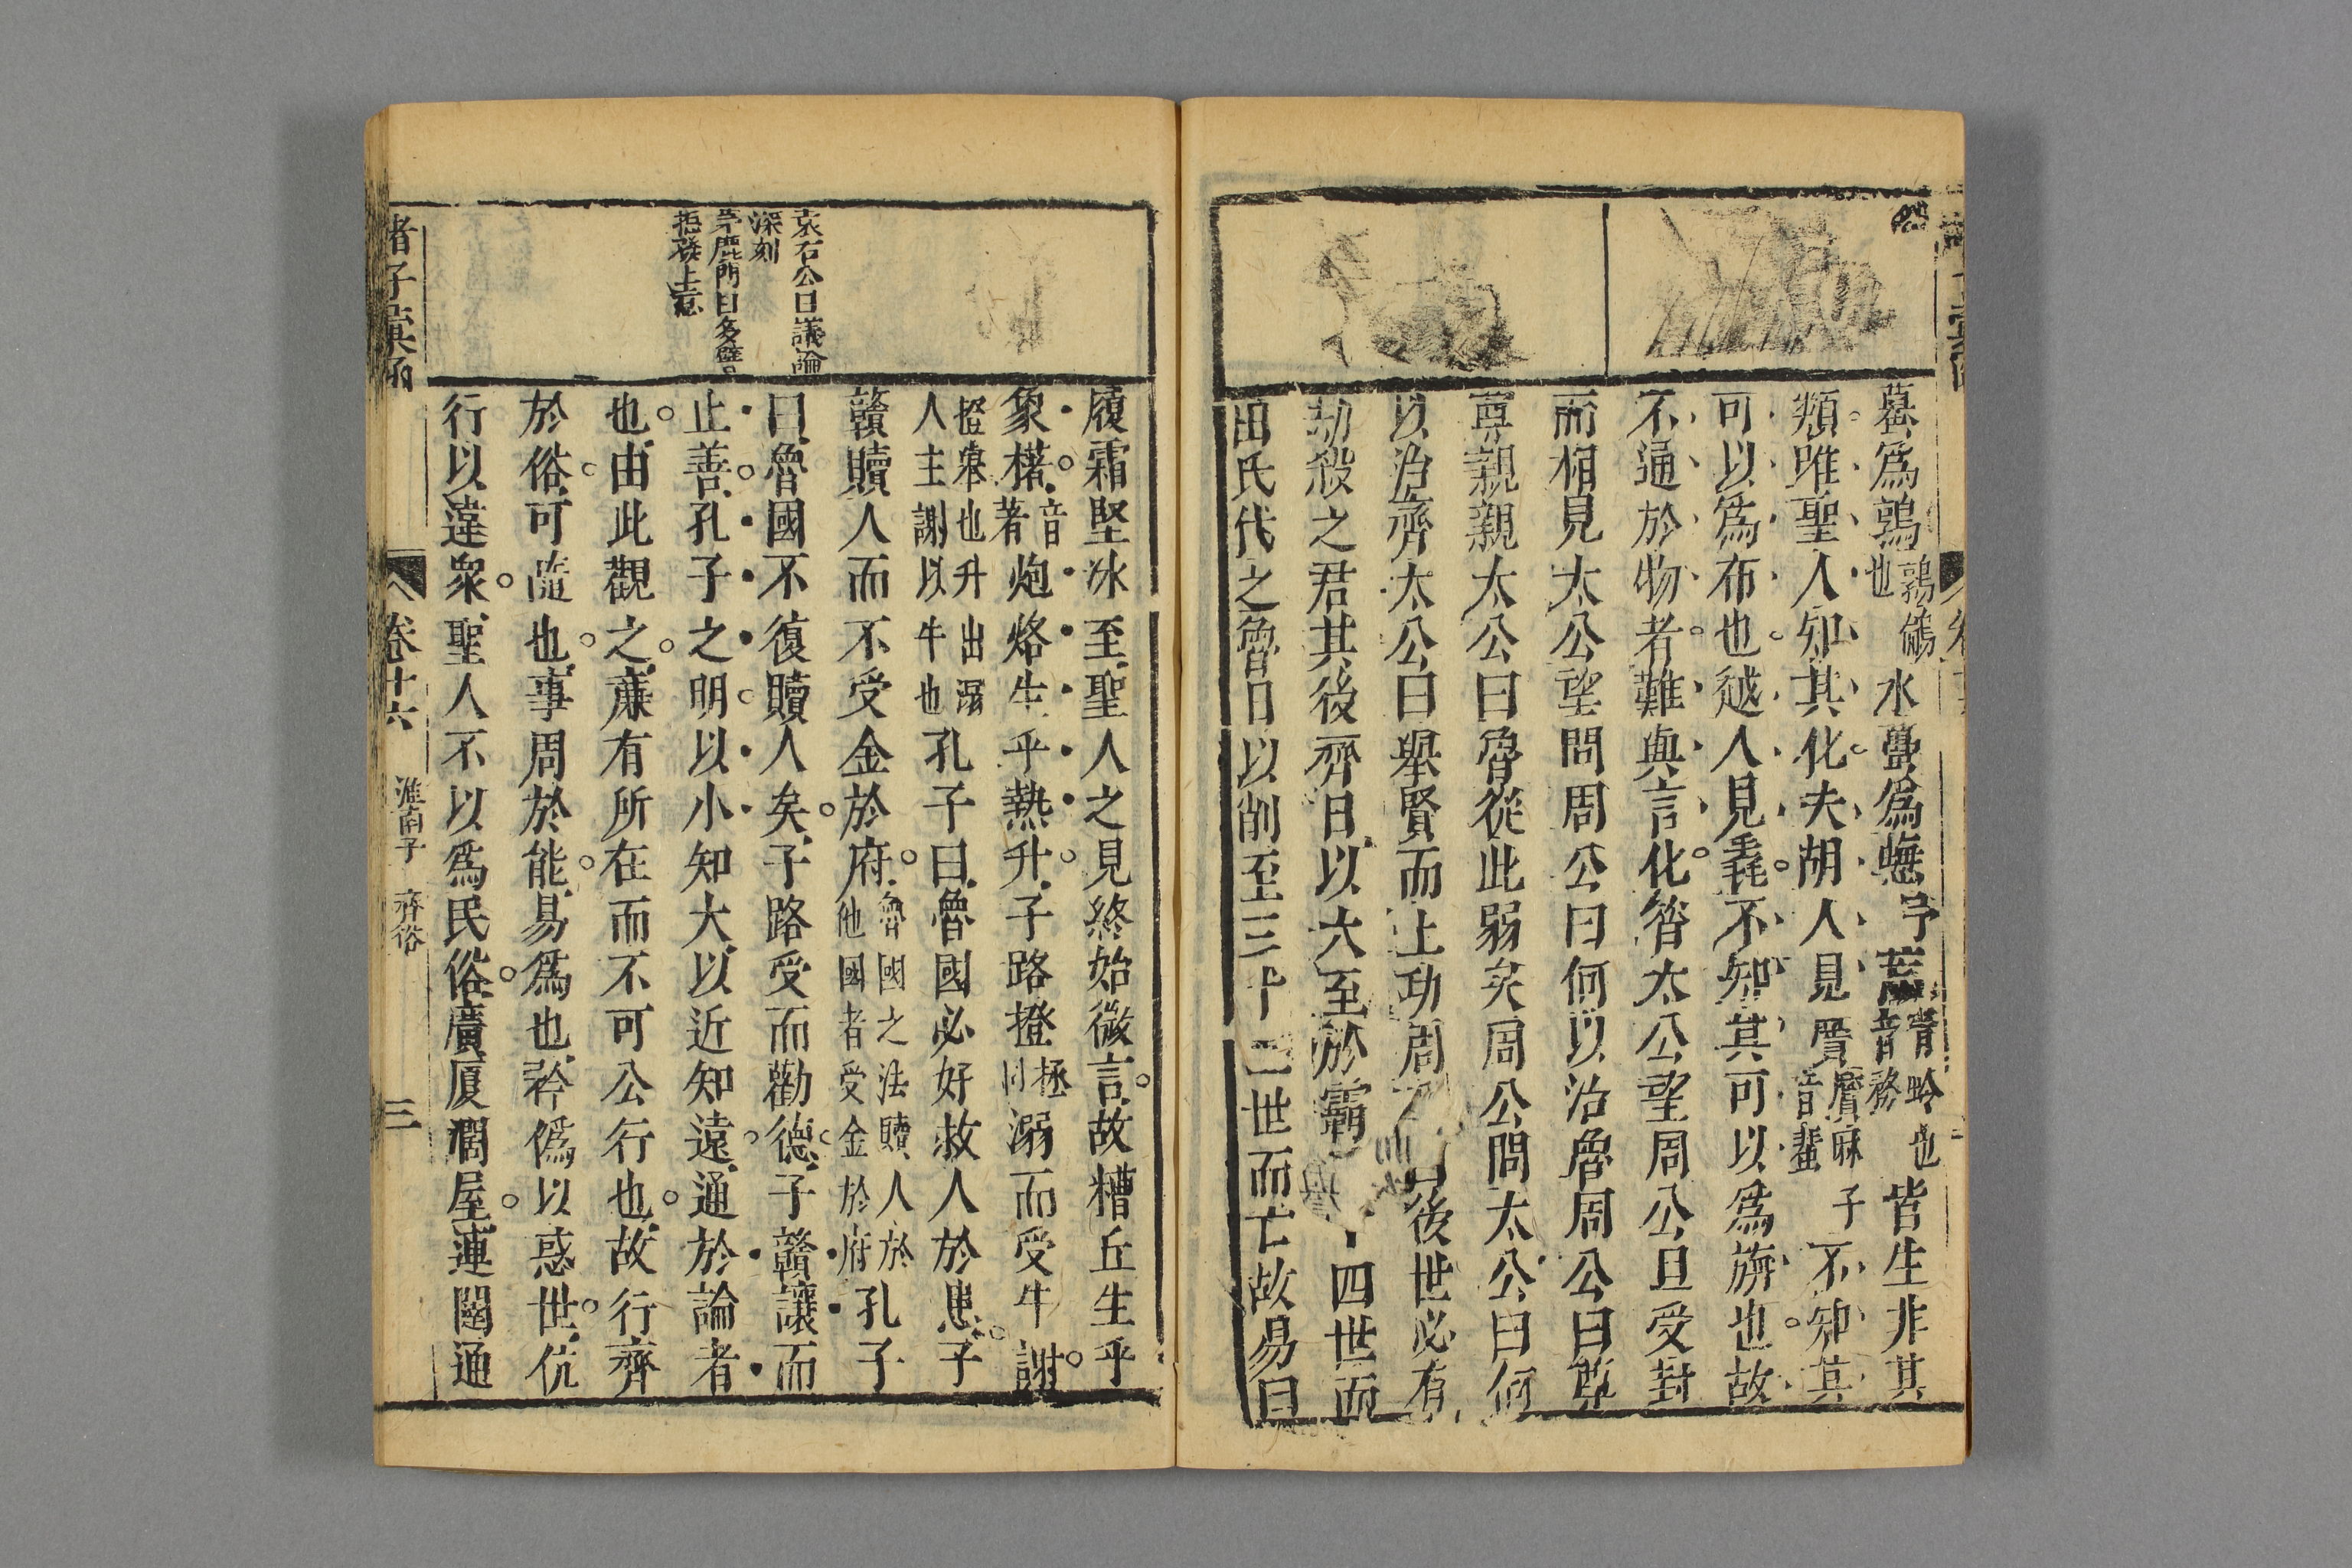 蟇爲鶉鶉鵪也水蠆爲蟌皆生非其
類唯聖人知其化夫胡人見黂黂麻子音蜚不知其
可以爲布也越人見毳不知其可以爲旃也故
不通於物者難與言化昝太公望周公旦受封
而相見太公望問周公曰何以治魯周公曰尊
尊親親太公曰魯從此弱矣周公問太公曰何
以治齊太公曰舉賢而上功周後世必有
劫殺之君其後齊日以大至於霸四世而
田氏代之魯日以削至三十二世而亡故易曰
履霜堅冰至聖人之見終始微言故糟丘生乎
象櫡音著炮烙生乎熱升子路撜拯同溺而受牛謝
撜舉也升出溺人主謝以牛也孔子曰魯國必好救人於患子
贛贖人而不受金於府魯國之法贖人於他國者受金於府孔子
曰魯國不復贖人矣子路受而勸德子贛讓而
止善孔子之明以小知大以近知遠通於論者
也由此觀之廉有所在而不可公行也故行齊
於俗可隨也事周於能易爲也矜僞以惑世伉
行以違衆聖人不以爲民俗廣厦濶屋連闥通
袁石公曰議論
深刻
茅鹿門曰多譬
拒發上意
諸子彙函
卷十六
淮南子 齊俗
三